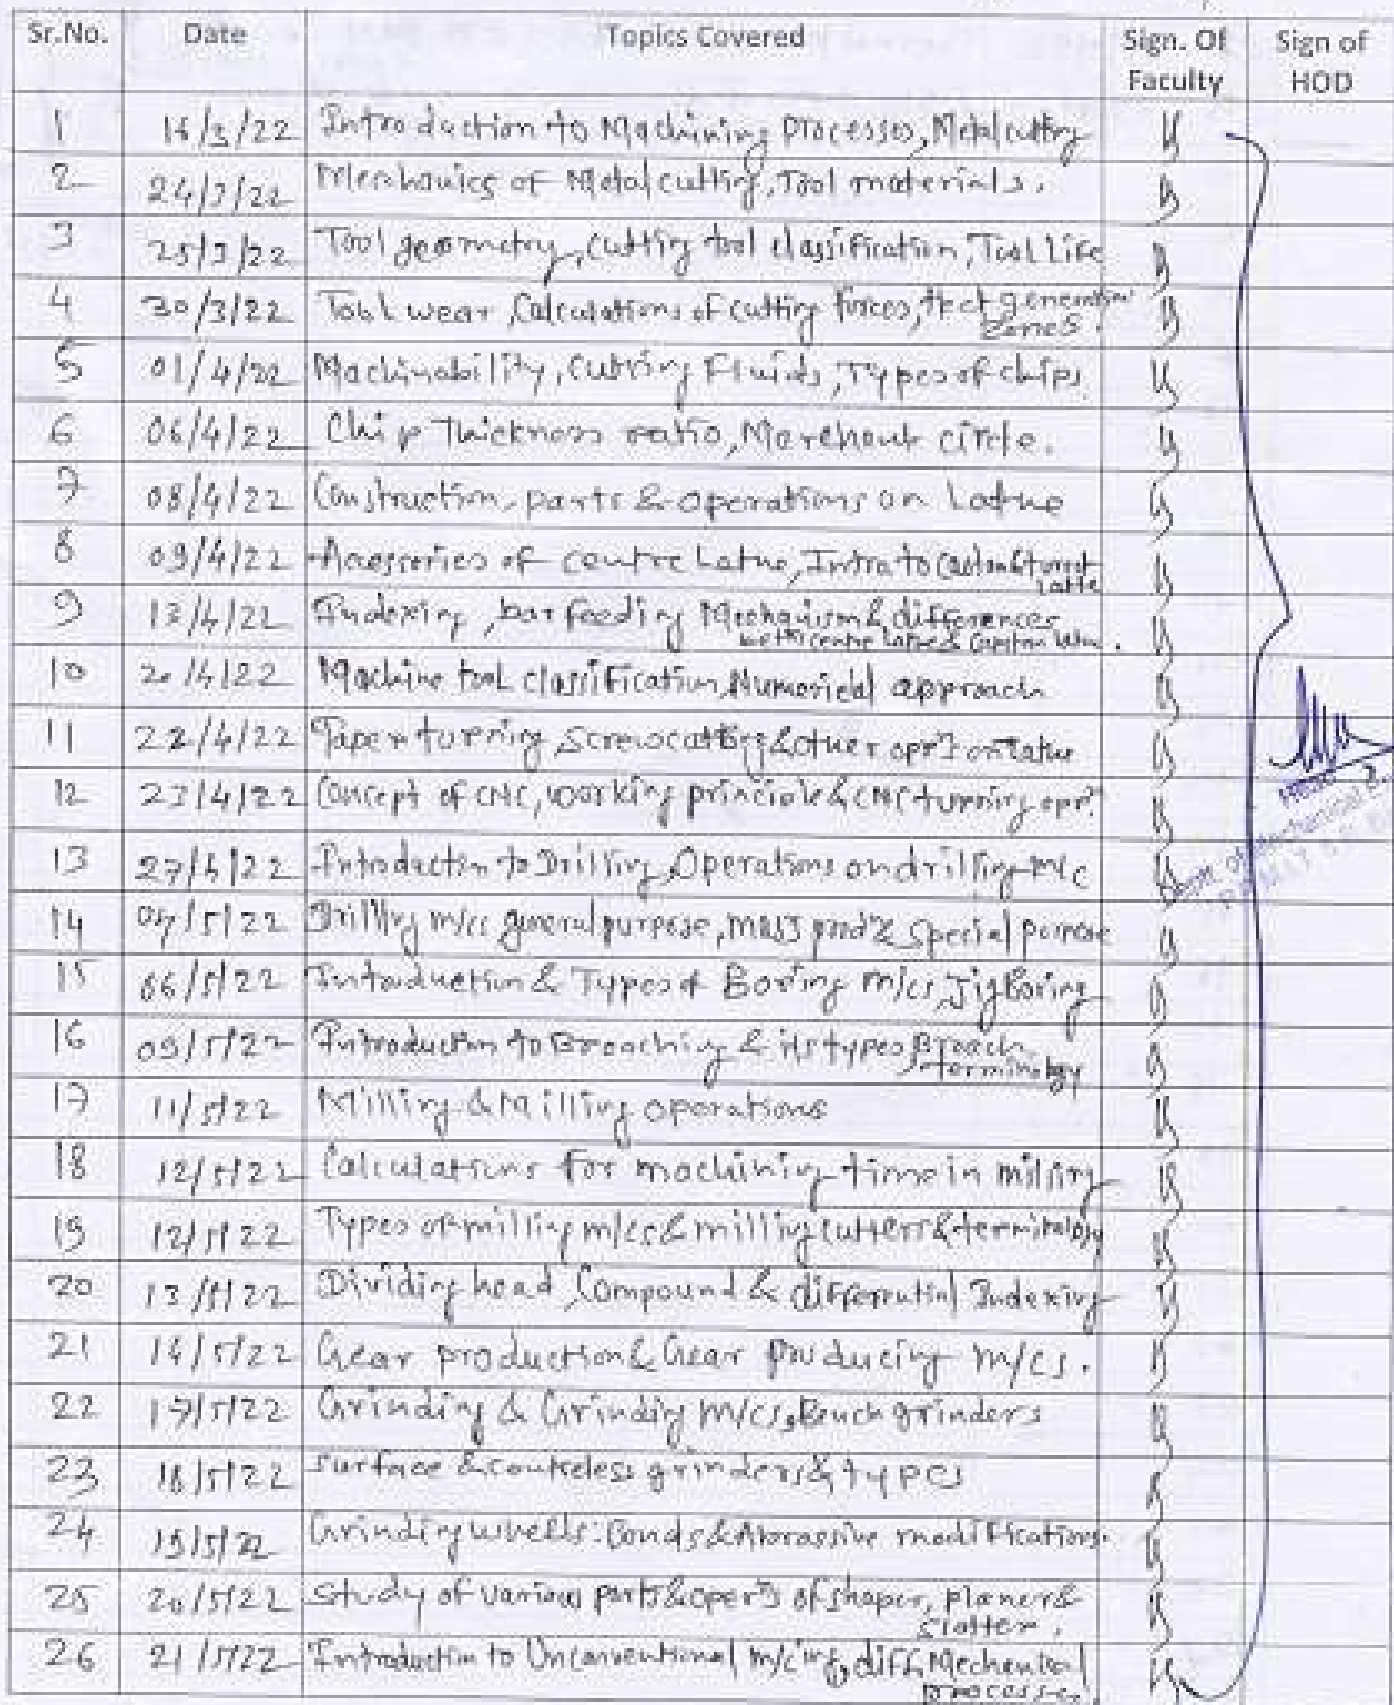 Sr.No. Date Topics Covered Sign. Of Faculty Sign of HOD
1 16/3/22 Introduction to Machining Processes, Metal cutting
2 24/3/22 Mechanics of Metal cutting, Tool materials.
3 25/3/22 Tool geometry, cutting tool classification, Tool Life
4 30/3/22 Tool wear, Calculations of cutting forces, heat generation zones.
5 01/4/22 Machinability, Cutting Fluids, Types of chips
6 06/4/22 Chip thickness ratio, Merchant circle.
7 08/4/22 Construction, parts & operations on Lathe
8 09/4/22 Accessories of centre Lathe, Intro to Capstan & turret lathe
9 13/4/22 Indexing, bar feeding Mechanism & differences centre lathe & Capstan lathe.
10 20/4/22 Machine tool classification, Numerical approach
11 22/4/22 Taper turning, Screw cutting & other oprn on lathe
12 23/4/22 Concept of CNC, working principle & CNC turning oprn
13 27/4/22 Introduction to Drilling, Operations on drilling m/c
14 /5/22 Drilling m/cs general purpose, mass prodn & special purpose
15 06/5/22 Introduction & Types of Boring m/cs, Jig Boring
16 09/5/22 Introduction to Broaching & its types, Broach terminology
17 11/5/22 Milling & Milling operations
18 12/5/22 Calculations for machining time in milling
19 12/5/22 Types of milling m/cs & milling cutters & terminology
20 13/5/22 Dividing head, Compound & differential Indexing
21 14/5/22 Gear production & Gear producing m/cs.
22 17/5/22 Grinding & Grinding m/cs, Bench grinders
23 18/5/22 Surface & centreless grinders & types
24 19/5/22 Grinding wheels: Bonds & Abrassive modifications.
25 20/5/22 Study of various parts & opern of shaper, planer & slotter.
26 21/5/22 Introduction to Unconventional m/cing, diff. Mechanical processes.